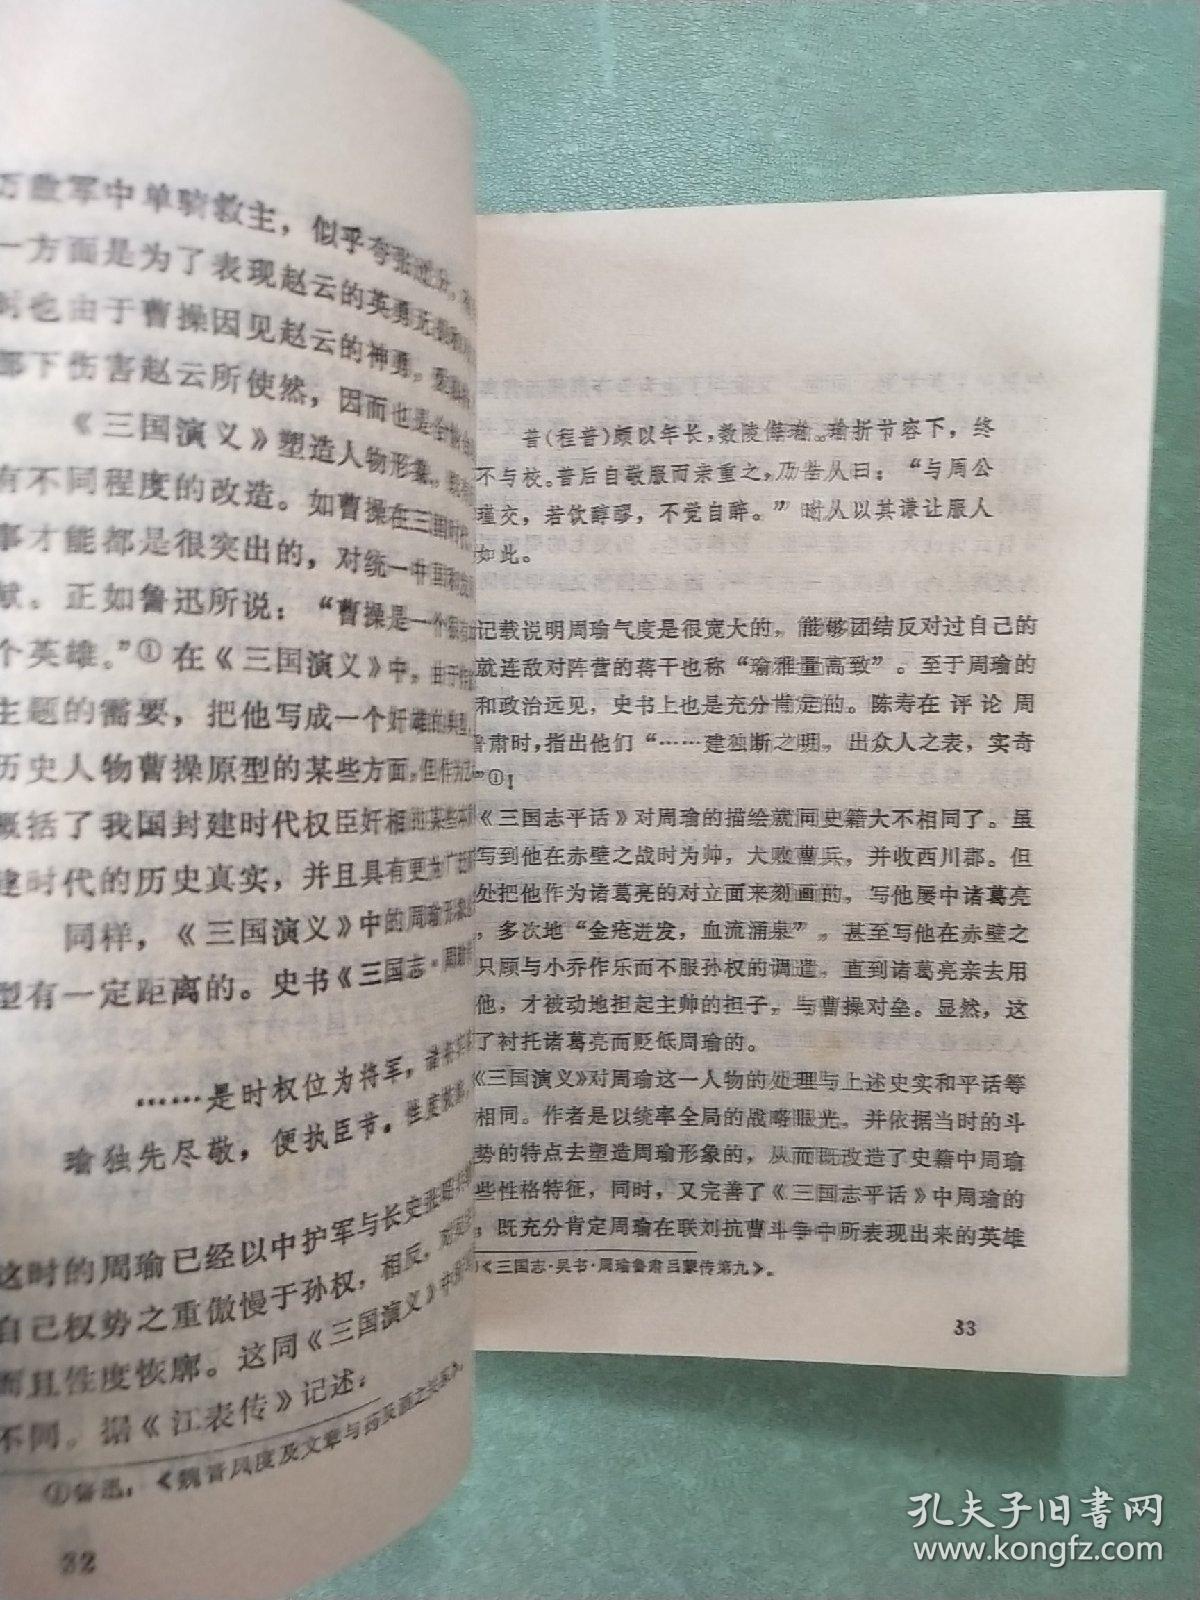 万敌军中单骑救主，似乎夸张过分，
一方面是为了表现赵云的英勇无
时也由于曹操因见赵云的神勇，
部下伤害赵云所使然，因而也是合
《三国演义》塑造人物形象，
有不同程度的改造。如曹操在三国时代，
事才能都是很突出的，对统一中国和
献。正如鲁迅所说：“曹操是一个很有
个英雄。”①在《三国演义》中，由于
主题的需要，把他写成一个奸雄的典型，
历史人物曹操原型的某些方面，但作为
概括了我国封建时代权臣奸相的某些
建时代的历史真实，并且具有更为广
同样，《三国演义》中的周瑜形象
型有一定距离的。史书《三国志·周瑜
……是时权位为将军，诸
瑜独先尽敬，便执臣节。性度恢廓，
这时的周瑜已经以中护军与长史张昭
自己权势之重傲慢于孙权，相反，
而且性度恢廓。这同《三国演义》中
不同。据《江表传》记述：
①鲁迅：《魏晋风度及文章与药及酒之关系》
32
普(程普)颇以年长，数陵侮瑜。瑜折节容下，终
不与校。普后自敬服而亲重之，乃告人曰：“与周公
瑾交，若饮醇醪，不觉自醉。”时人以其谦让服人
如此。
记载说明周瑜气度是很宽大的，能够团结反对过自己的
就连敌对阵营的蒋干也称“瑜雅量高致”。至于周瑜的
和政治远见，史书上也是充分肯定的。陈寿在评论周
鲁肃时，指出他们“……建独断之明，出众人之表，实奇
”①！
《三国志平话》对周瑜的描绘就同史籍大不相同了。虽
写到他在赤壁之战时为帅，大败曹兵，并收西川郡。但
处把他作为诸葛亮的对立面来刻画的，写他屡中诸葛亮
，多次地“金疮迸发，血流涌泉”，甚至写他在赤壁之
只顾与小乔作乐而不服孙权的调遣，直到诸葛亮亲去用
他，才被动地担起主帅的担子，与曹操对垒。显然，这
了衬托诸葛亮而贬低周瑜的。
《三国演义》对周瑜这一人物的处理与上述史实和平话等
相同。作者是以统率全局的战略眼光，并依据当时的斗
势的特点去塑造周瑜形象的，从而既改造了史籍中周瑜
些性格特征，同时，又完善了《三国志平话》中周瑜的
；既充分肯定周瑜在联刘抗曹斗争中所表现出来的英雄
《三国志·吴书·周瑜鲁肃吕蒙传第九》。
33
孔夫子旧书网
www.kongfz.com